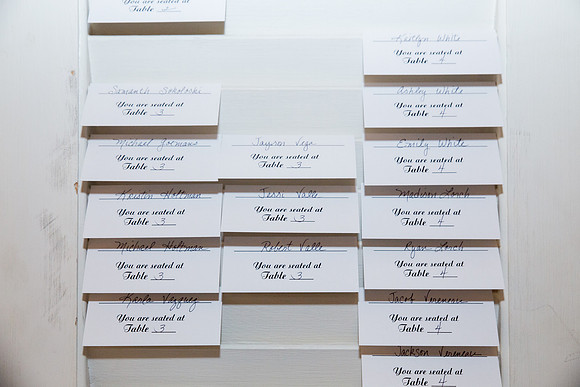 You are seated at
Table 2
Samantha Sokoloski
You are seated at
Table 3
Michael
You are seated at
Table 3
Kristen Holtman
You are seated at
Table 3
Michael Holtman
You are seated at
Table 3
Karla Vazquez
You are seated at
Table 3
Jayson Vega
You are seated at
Table 3
Jerri Valle
You are seated at
Table 3
Robert Valle
You are seated at
Table 3
Kaitlyn White
You are seated at
Table 4
Ashley White
You are seated at
Table 4
Emily White
You are seated at
Table 4
Madison Lorch
You are seated at
Table 4
Ryan Lorch
You are seated at
Table 4
Jacob
You are seated at
Table 4
Jackson
You are seated at
Table 4